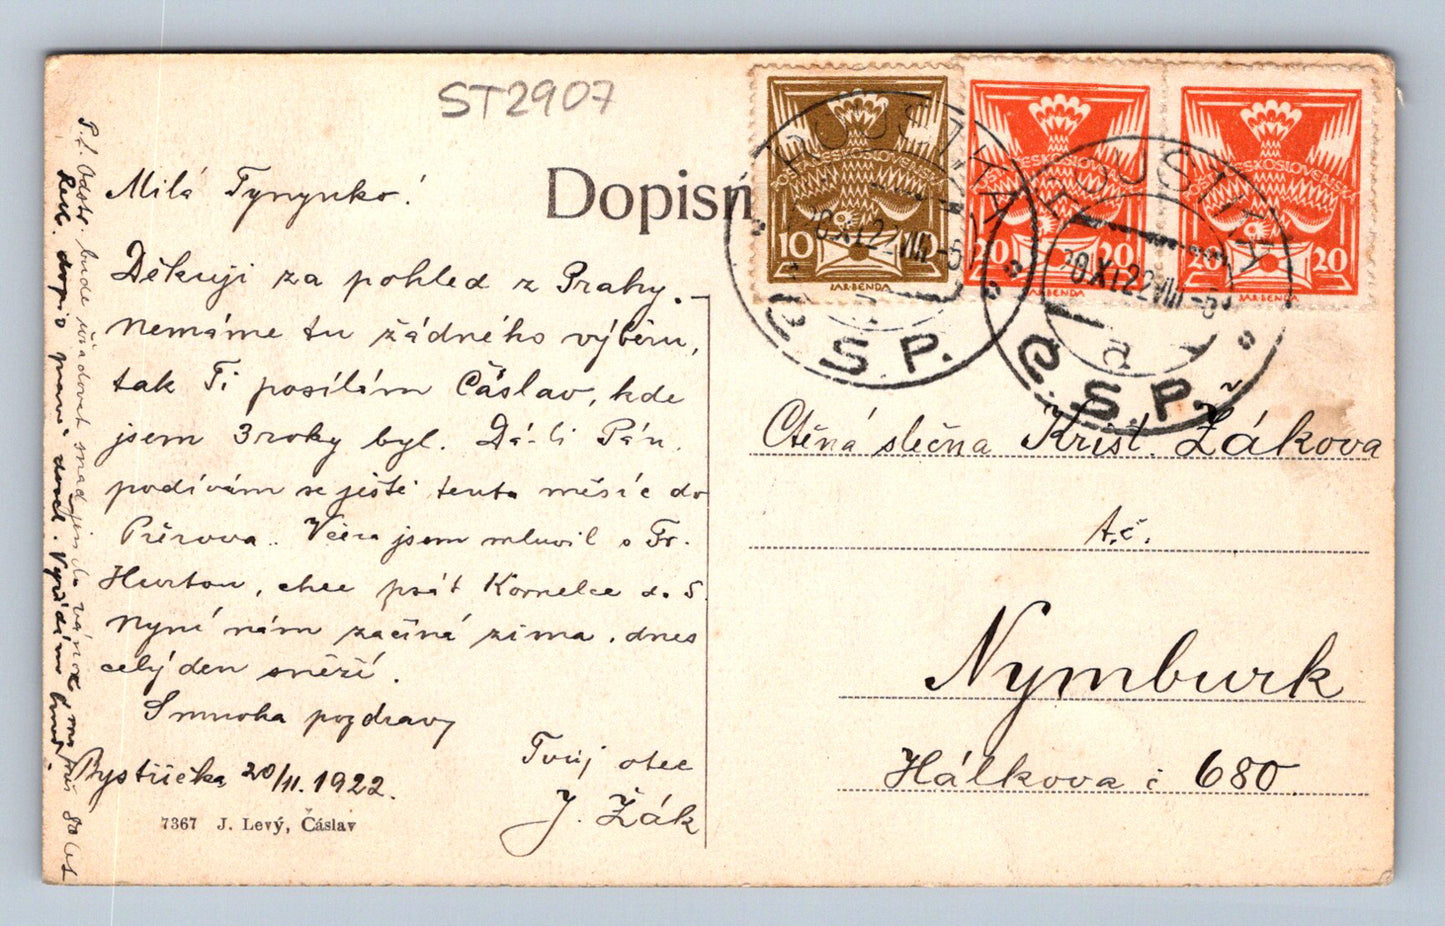 ST2907
Dopisn
Milá Tynynko!
Děkuji za pohled z Prahy. –
nemáme tu žádného výběru,
tak Ti posílám Čáslav, kde
jsem 3 roky byl. Dá-li Pán,
podívám se ještě tento měsíc do
Přerova.. Včera jsem mluvil s Fr.
, chce psát Kornelce do S.
Nyní nám začíná zima, dnes
celý den sněží.
Smnoha pozdravy
Tvůj otec
J. Žák
Bystřička 20/11.1922.
7367 J. Levý, Čáslav
P.S. bude snad
dopis
POŠTA ČESKOSLOVENSKÁ
10 10
JAR·BENDA
POŠTA ČESKOSLOVENSKÁ
20 20
JAR·BENDA
POŠTA ČESKOSLOVENSKÁ
20 20
JAR·BENDA
ROUSTKA
20.XI.22.VIII-5
Č.S.P.
ROUSTKA
20.XI.22.VIII-5
a
Č.S.P.
Ctěná slečna Krist. Žákova
t.č.
Nymburk
Hálkova č 680